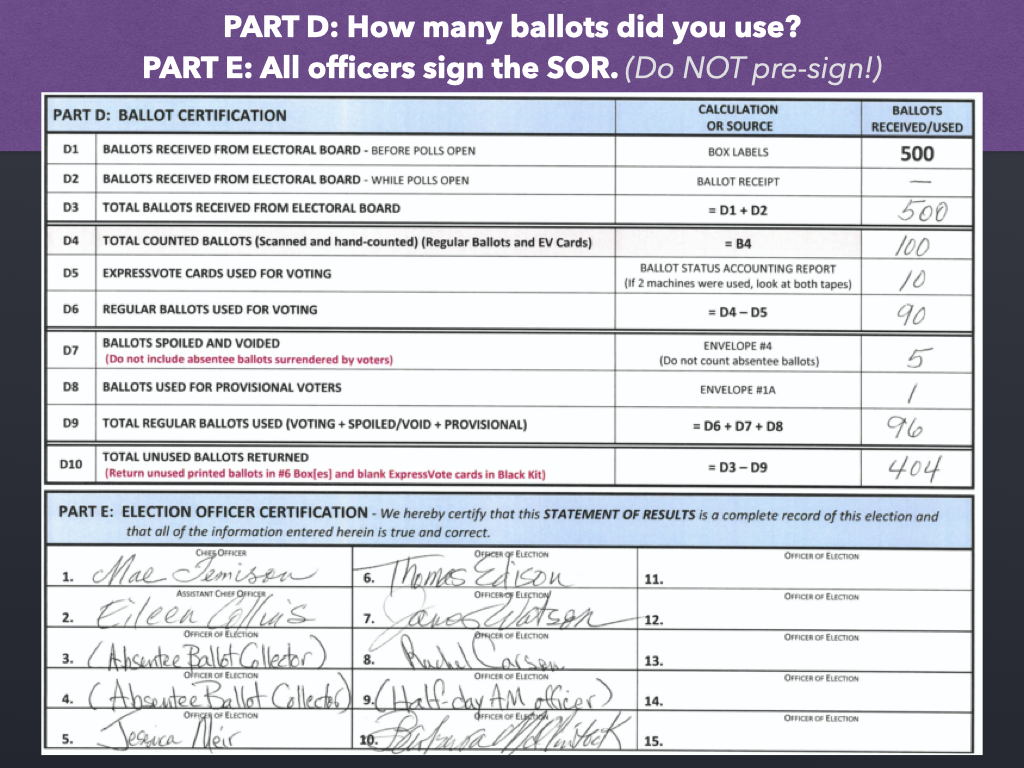 PART D: How many ballots did you use?
PART E: All officers sign the SOR. (Do NOT pre-sign!)
PART D: BALLOT CERTIFICATION
CALCULATION
OR SOURCE
BALLOTS
RECEIVED/USED
D1 BALLOTS RECEIVED FROM ELECTORAL BOARD - BEFORE POLLS OPEN BOX LABELS 500
D2 BALLOTS RECEIVED FROM ELECTORAL BOARD - WHILE POLLS OPEN BALLOT RECEIPT —
D3 TOTAL BALLOTS RECEIVED FROM ELECTORAL BOARD = D1 + D2 500
D4 TOTAL COUNTED BALLOTS (Scanned and hand-counted) (Regular Ballots and EV Cards) = B4 100
D5 EXPRESSVOTE CARDS USED FOR VOTING
BALLOT STATUS ACCOUNTING REPORT
(If 2 machines were used, look at both tapes)
10
D6 REGULAR BALLOTS USED FOR VOTING = D4 – D5 90
D7
BALLOTS SPOILED AND VOIDED
(Do not include absentee ballots surrendered by voters)
ENVELOPE #4
(Do not count absentee ballots)
5
D8 BALLOTS USED FOR PROVISIONAL VOTERS ENVELOPE #1A 1
D9 TOTAL REGULAR BALLOTS USED (VOTING + SPOILED/VOID + PROVISIONAL) = D6 + D7 + D8 96
D10
TOTAL UNUSED BALLOTS RETURNED
(Return unused printed ballots in #6 Box[es] and blank ExpressVote cards in Black Kit)
= D3 – D9 404
PART E: ELECTION OFFICER CERTIFICATION - We hereby certify that this STATEMENT OF RESULTS is a complete record of this election and
that all of the information entered herein is true and correct.
CHIEF OFFICER
1. Mae Jemison
ASSISTANT CHIEF OFFICER
2. Eileen Collins
OFFICER OF ELECTION
3. (Absentee Ballot Collector)
OFFICER OF ELECTION
4. (Absentee Ballot Collector)
OFFICER OF ELECTION
5. Jessica Meir
OFFICER OF ELECTION
6. Thomas Edison
OFFICER OF ELECTION
7. James Watson
OFFICER OF ELECTION
8. Rachel Carson
OFFICER OF ELECTION
9. (Half-day AM officer)
OFFICER OF ELECTION
10. Barbara McClintock
OFFICER OF ELECTION
11.
OFFICER OF ELECTION
12.
OFFICER OF ELECTION
13.
OFFICER OF ELECTION
14.
OFFICER OF ELECTION
15.